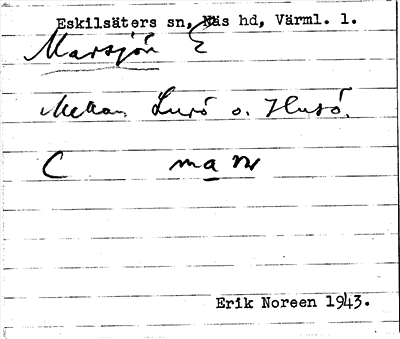 Eskilsäters sn, Näs hd, Värml. l.
Marsjön
Mellan Lurö o. Husö.
C
Erik Noreen 1943.